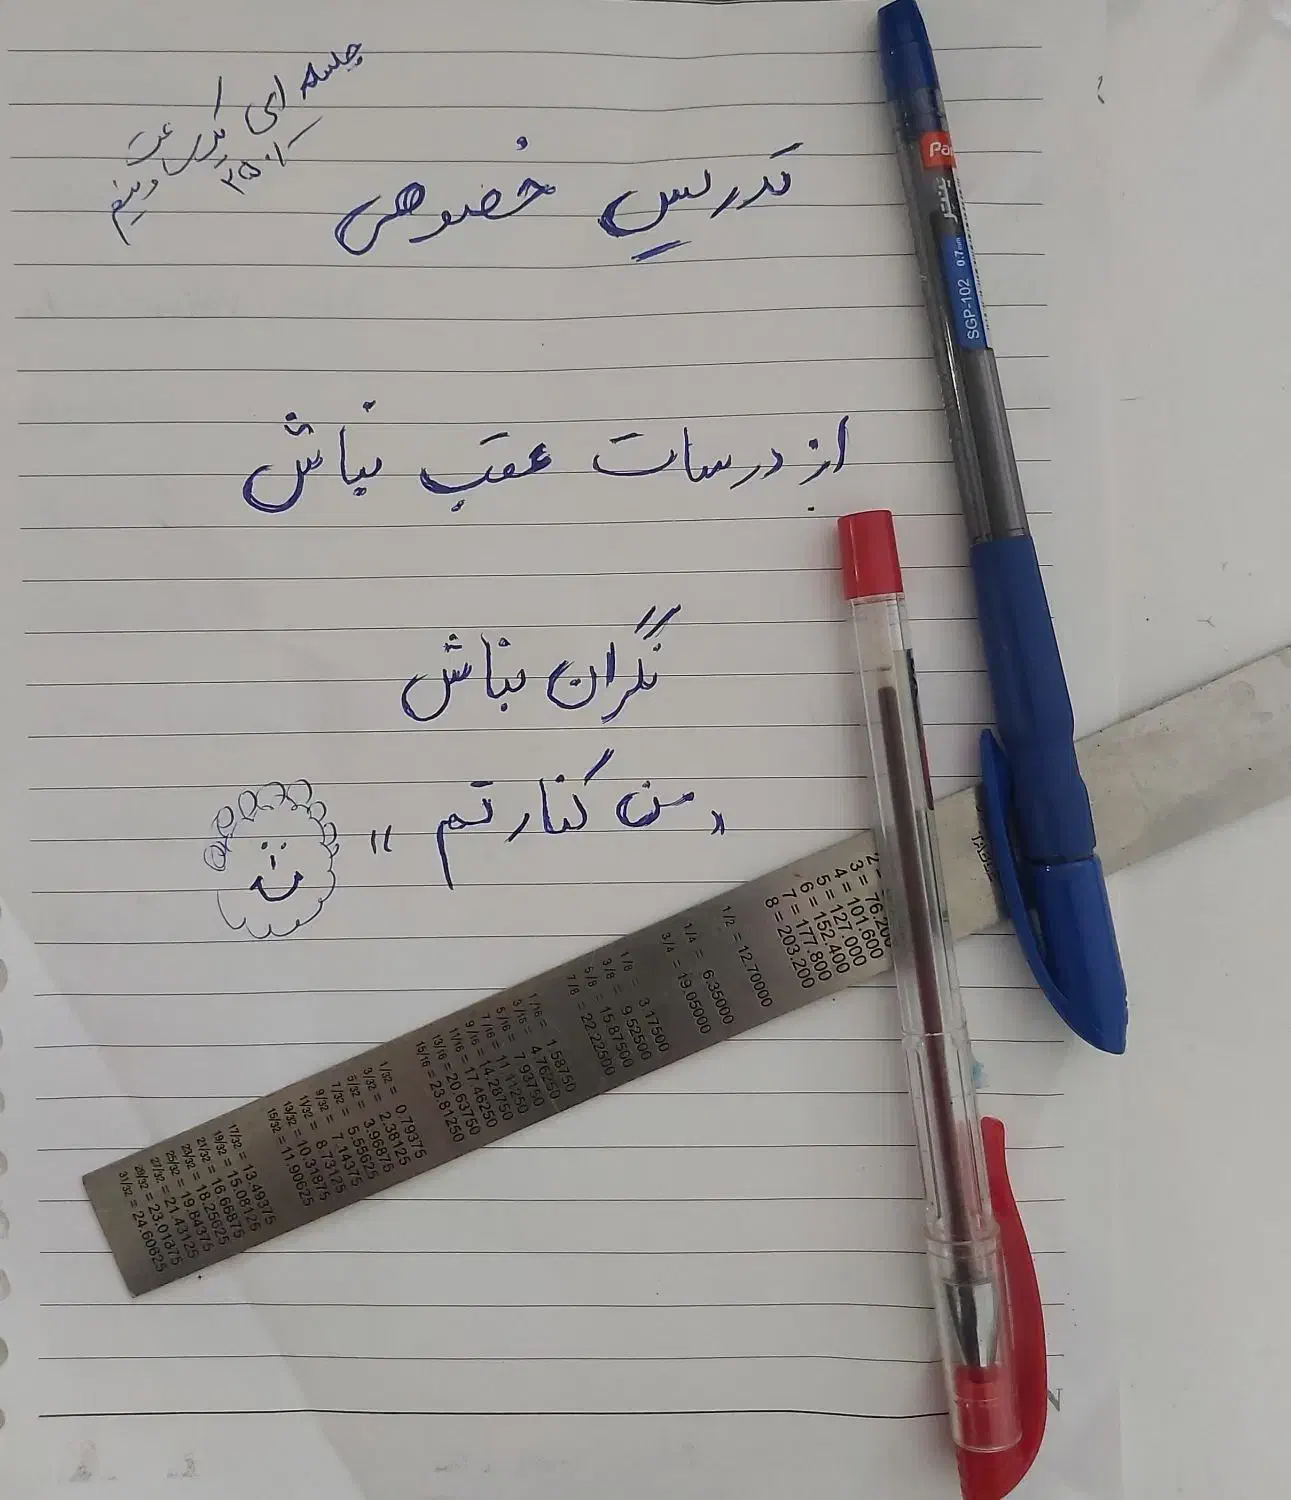 جلسه ای یک ساعت
و نیم
۲۵۰/
تدریس خصوصی
از درسات عقب نباش
نگران نباش
"من کنارتم"
Pa
پنتر
SGP-102 0.7mm
TABLE
3 = 76.200
4 = 101.600
5 = 127.000
6 = 152.400
7 = 177.800
8 = 203.200
1/2 = 12.70000
1/4 = 6.35000
3/4 = 19.05000
1/8 = 3.17500
3/8 = 9.52500
5/8 = 15.87500
7/8 = 22.22500
1/16 = 1.58750
3/16 = 4.76250
5/16 = 7.93750
7/16 = 11.11250
9/16 = 14.28750
11/16 = 17.46250
13/16 = 20.63750
15/16 = 23.81250
1/32 = 0.79375
3/32 = 2.38125
5/32 = 3.96875
7/32 = 5.55625
9/32 = 7.14375
11/32 = 8.73125
13/32 = 10.31875
15/32 = 11.90625
17/32 = 13.49375
19/32 = 15.08125
21/32 = 16.66875
23/32 = 18.25625
25/32 = 19.84375
27/32 = 21.43125
29/32 = 23.01875
31/32 = 24.60625